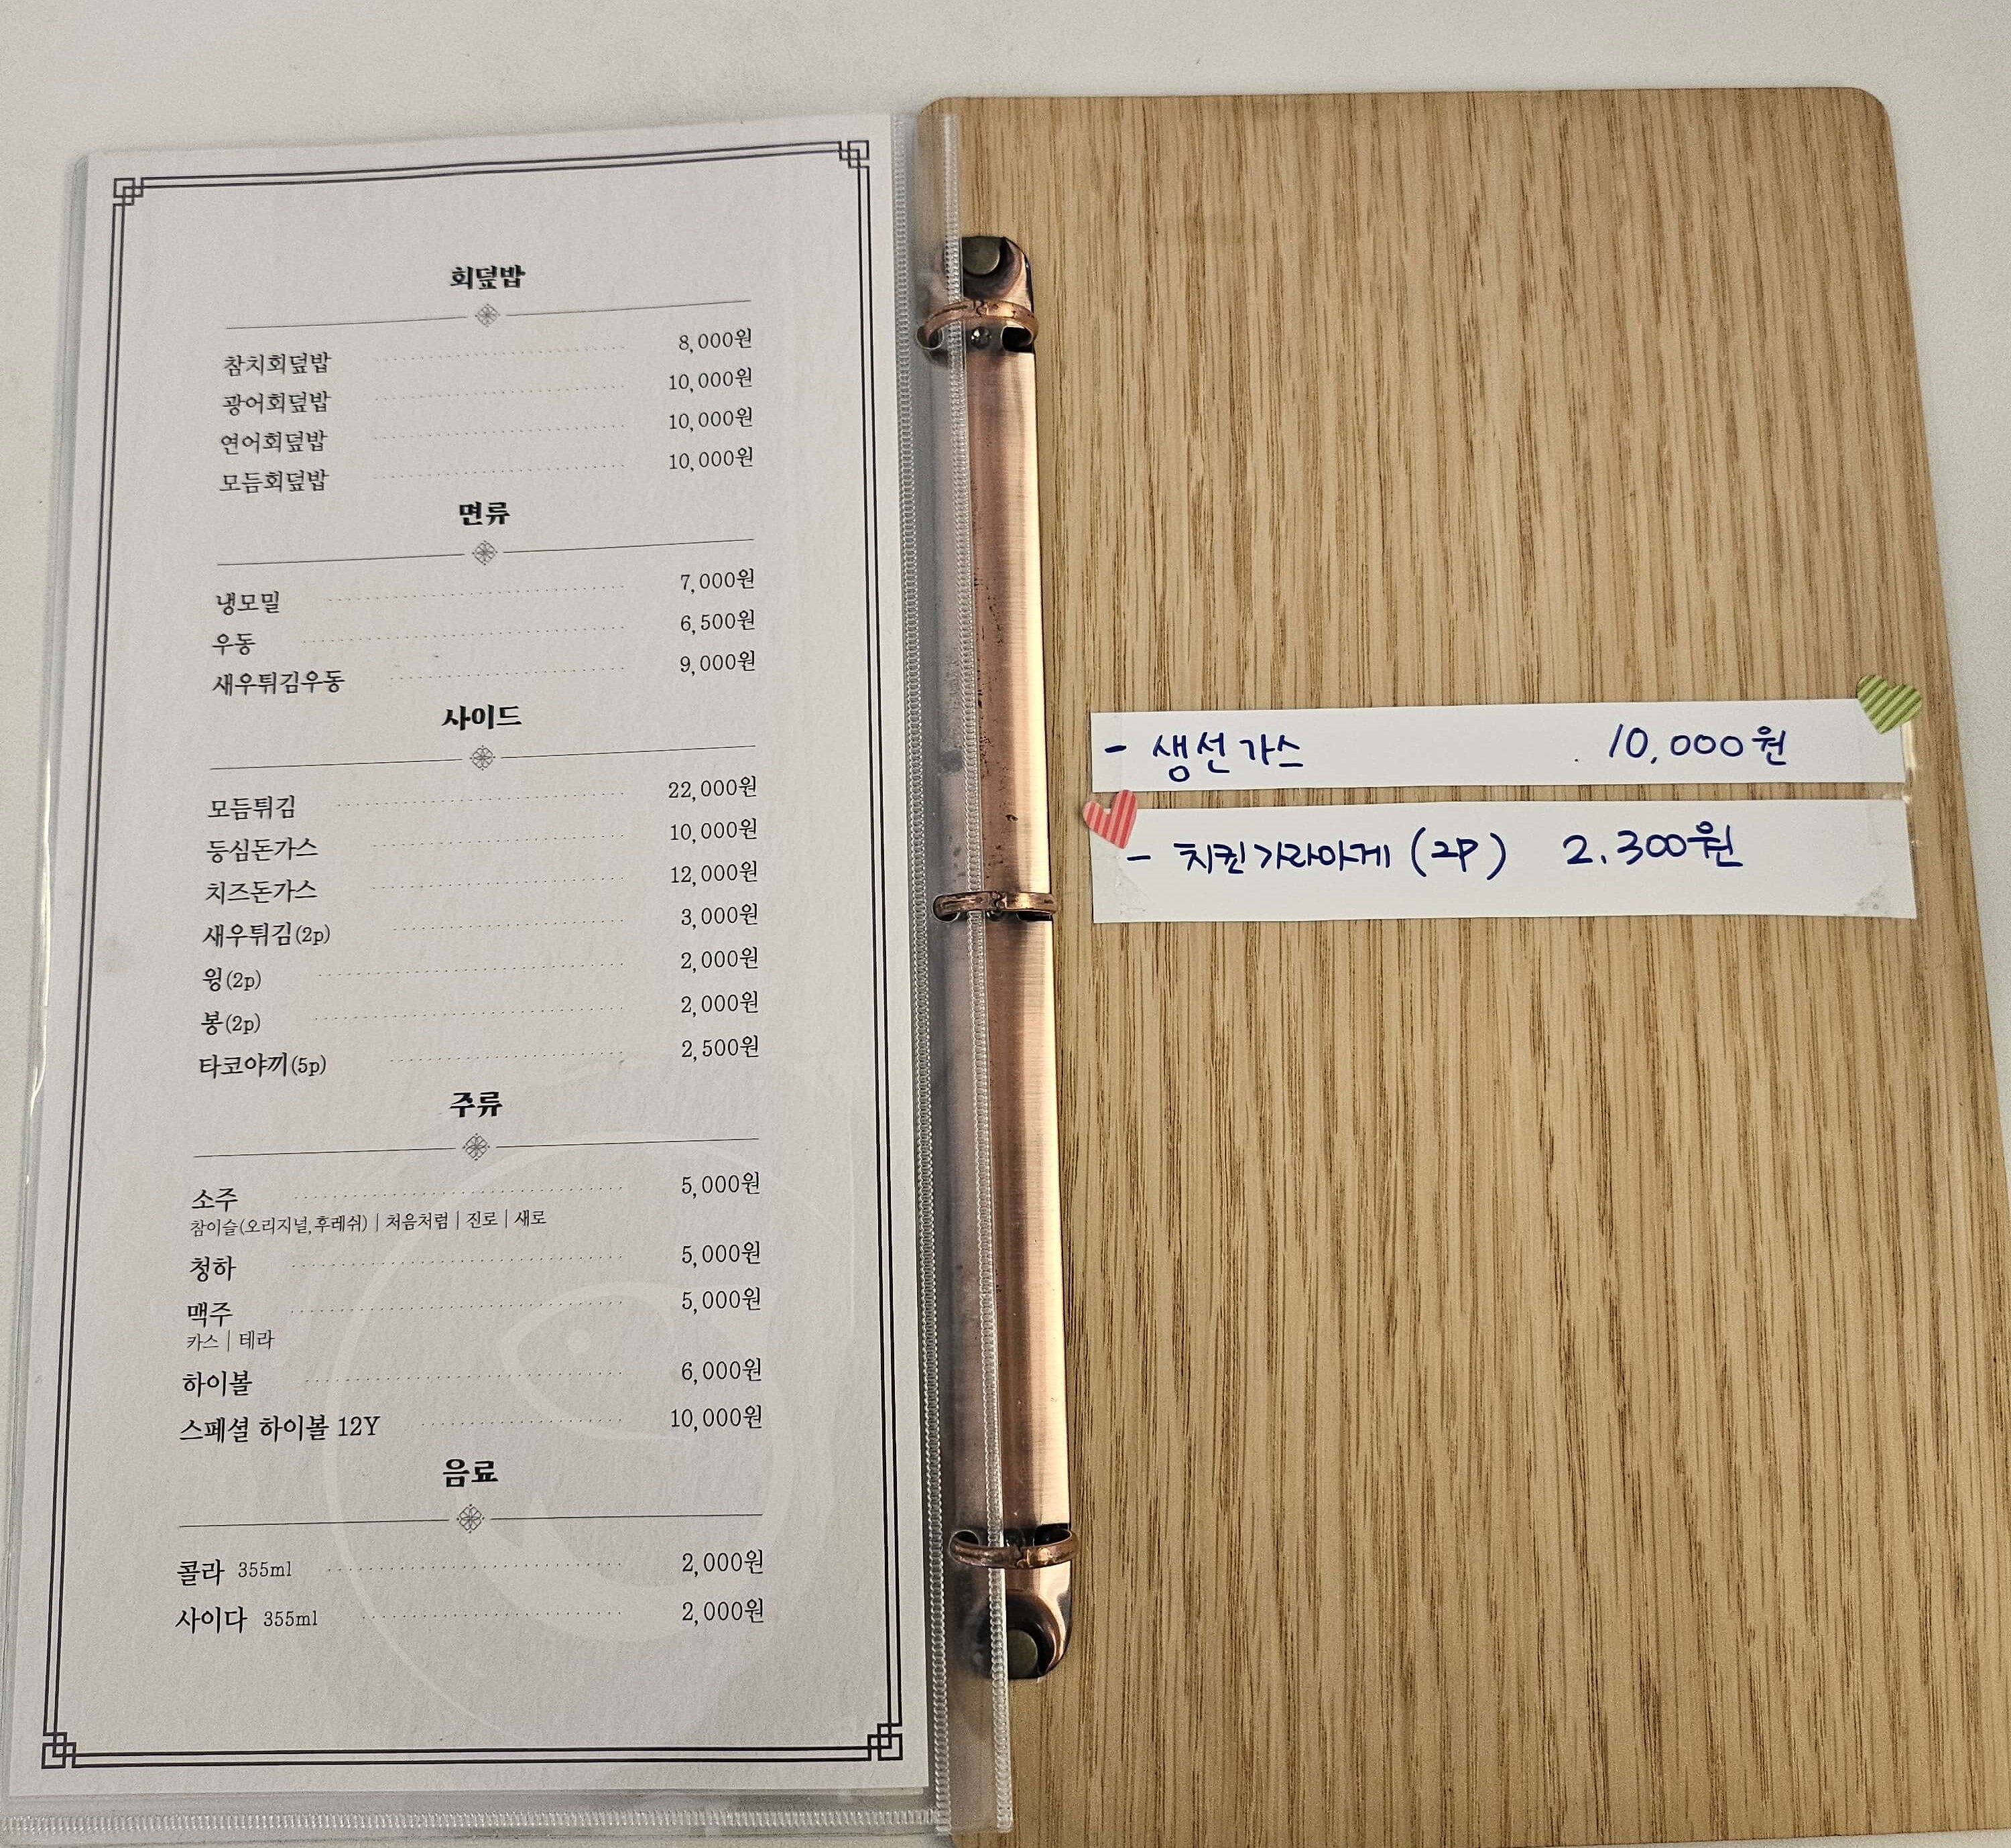 회덮밥
참치회덮밥 8,000원
광어회덮밥 10,000원
연어회덮밥 10,000원
모듬회덮밥 10,000원
면류
냉모밀 7,000원
우동 6,500원
새우튀김우동 9,000원
사이드
모듬튀김 22,000원
등심돈가스 10,000원
치즈돈가스 12,000원
새우튀김(2p) 3,000원
윙(2p) 2,000원
봉(2p) 2,000원
타코야끼(5p) 2,500원
주류
소주 5,000원
참이슬(오리지널,후레쉬) | 처음처럼 | 진로 | 새로
청하 5,000원
맥주 5,000원
카스 | 테라
하이볼 6,000원
스페셜 하이볼 12Y 10,000원
음료
콜라 355ml 2,000원
사이다 355ml 2,000원
- 생선가스 10,000원
- 치킨가라아게 (2P) 2.300원